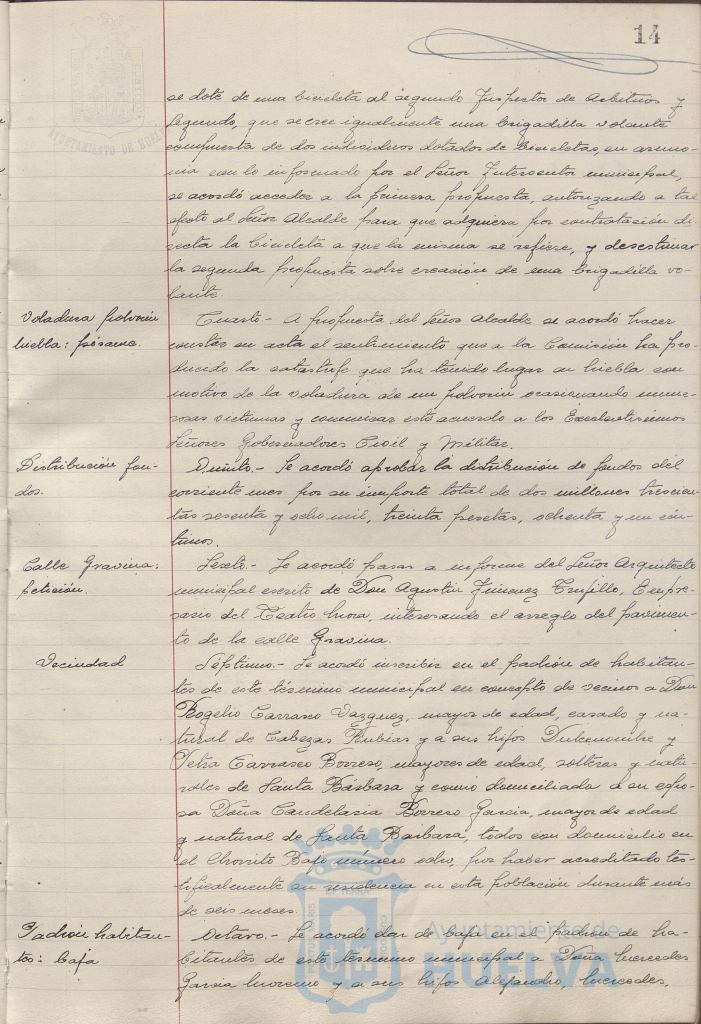 14
se dote de una bicicleta al segundo Inspector de Arbitrios y
segundo, que se cree igualmente una brigadilla volante
compuesta de dos individuos dotados de bicicletas, en armo-
nia con lo informado por el Señor Interventor municipal,
se acordó acceder a la primera propuesta, autorizando a tal
efecto al Señor Alcalde para que adquiera por contratación di-
recta la bicicleta a que la misma se refiere, y desestimar
la segunda propuesta sobre creación de una brigadilla vo-
lante.
Voladura polvorin
Niebla: pésame.
Cuarto.- A propuesta del Señor Alcalde se acordó hacer
constar en acta el sentimiento que a la Comisión ha pro-
ducido la catástrofe que ha tenido lugar en Niebla con
motivo de la voladura de un polvorin ocasionando nume-
rosas victimas y comunicar este acuerdo a los Excelentisimos
Señores Gobernadores Civil y Militar.
Distribución fon-
dos.
Quinto.- Se acordó aprobar la distribución de fondos del
corriente mes por su importe total de dos millones trescien-
tas sesenta y ocho mil, treinta pesetas, ochenta y un cén-
timos.
Calle Gravina:
petición.
Sexto.- Se acordó pasar a informe del Señor Arquitecto
municipal escrito de Don Agustin Jimenez Trujillo, Empre-
sario del Teatro Mora, interesando el arreglo del pavimen-
to de la calle Gravina.
Vecindad
Séptimo.- Se acordó inscribir en el padrón de habitan-
tes de este término municipal en concepto de vecinos a Don
Rogelio Carrasco Vazquez, mayor de edad, casado y na-
tural de Cabezas Rubias y a sus hijos Dulcenombre y
Petra Carrasco Borrero, mayores de edad, solteras y natu-
rales de Santa Bárbara y como domiciliada a su espo-
sa Doña Candelaria Borrero Garcia, mayor de edad
y natural de Santa Bárbara, todos con domicilio en
el Chorrito Bajo número ocho, por haber acreditado tes-
tificalmente su residencia en esta población durante más
de seis meses.
Padrón habitan-
tes: baja
Octavo.- Se acordó dar de baja en el padrón de ha-
bitantes de este término municipal a Doña Mercedes
Garcia Moreno y a sus hijos Alejandro, Mercedes,
Ayuntamiento de
HUELVA